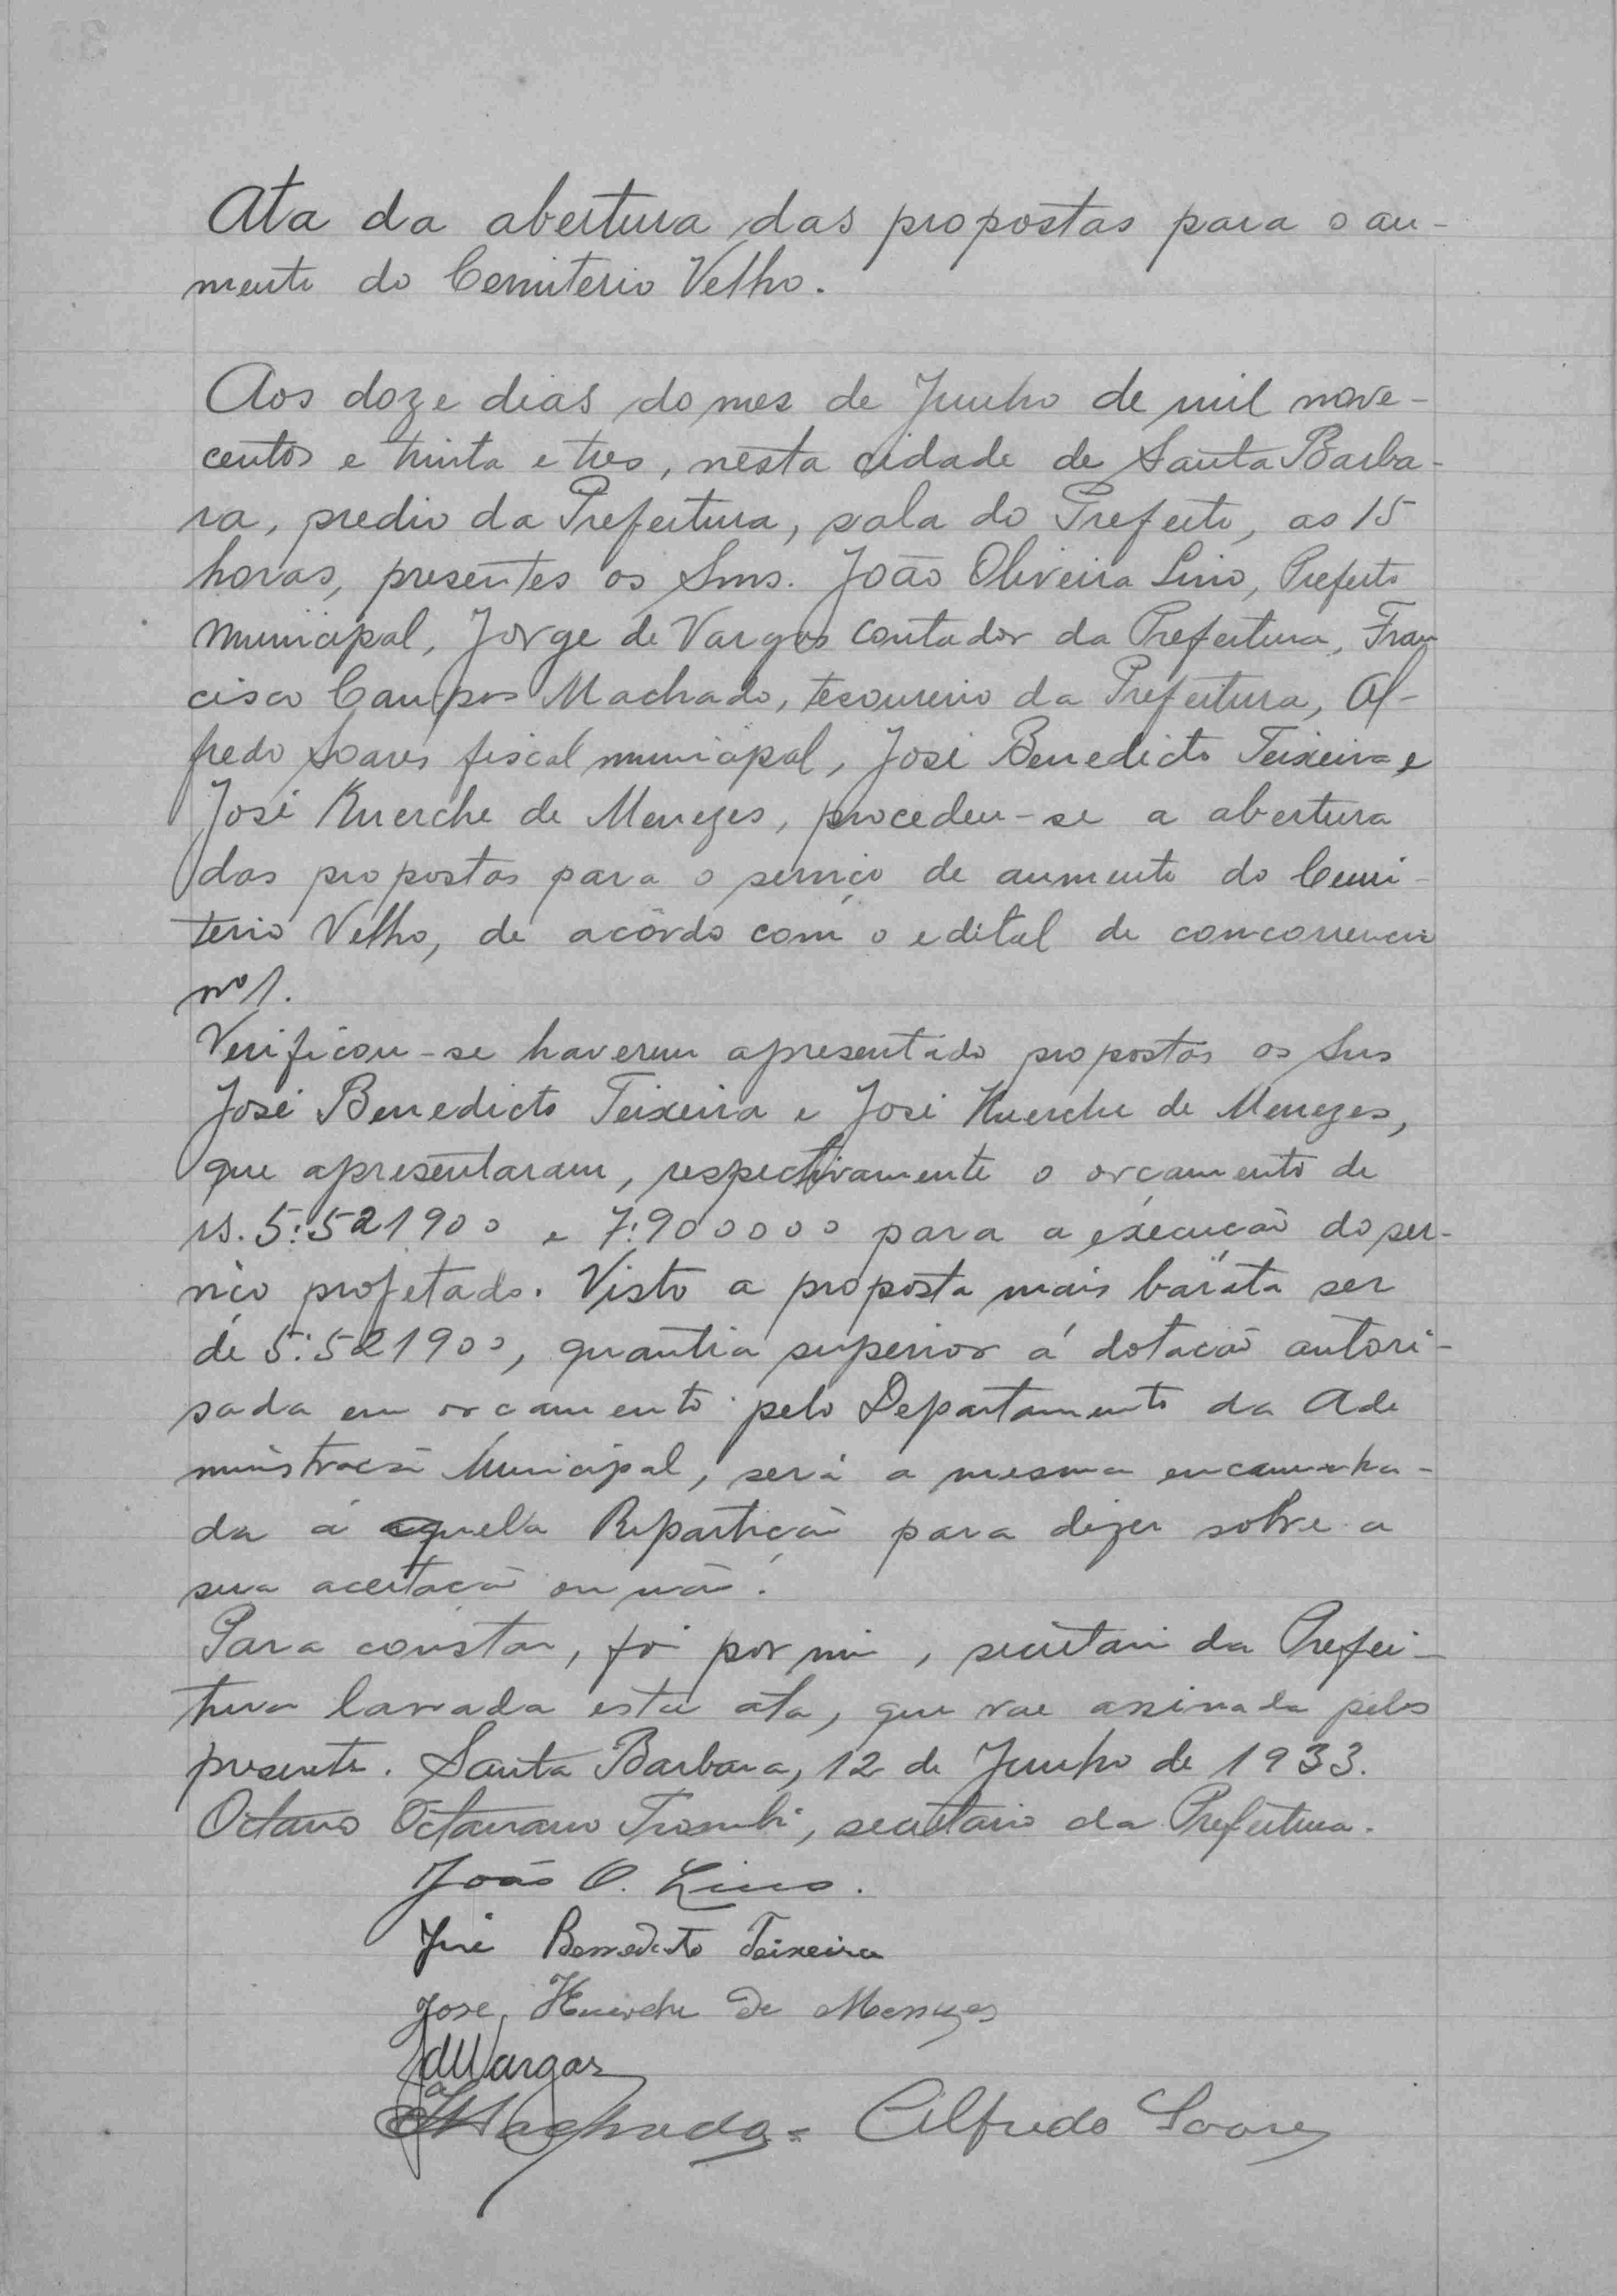 Ata da abertura das propostas para o au-
mento do Cemiterio Velho.
Aos doze dias do mez de Junho de mil nove-
centos e trinta e tres, nesta cidade de Santa Barba-
ra, predio da Prefeitura, sala do Prefeito, as 15
horas, presentes os Snrs. João Oliveira Lino, Prefeito
Municipal, Jorge de Vargas contador da Prefeitura, Fran
cisco Campos Machado, tesoureiro da Prefeitura, Al-
fredo Soares fiscal municipal, José Benedicto Teixeira e
José Kuerche de Menezes, procedeu-se a abertura
das propostas para o serviço de aumento do Cemi-
terio Velho, de acôrdo com o edital de concorrencia
nº 1.
Verificou-se haverem apresentado propostas os Snrs
José Benedicto Teixeira e José Kuerche de Menezes,
que apresentaram, respectivamente o orçamento de
rs. 5:521900 e 7:900000 para a execução do ser-
viço projetado. Visto a proposta mais barata ser
de 5:521900, quantia superior á dotação autori-
sada em orçamento pelo Departamento da Ade
ministração Municipal, será a mesma encaminha-
da á aquella Repartição para dizer sobre a
sua aceitação ou não.
Para constar, foi por mim, secretario da Prefei-
tura lavrada esta ata, que vae assinada pelos
presente. Santa Barbara, 12 de Junho de 1933.
Octavo Octaviano Trombi, secretario da Prefeitura.
João O. Lino.
José Benedicto Teixeira
Jose Kuerche de Menezes
JdVargas
Machado = Alfredo Soares